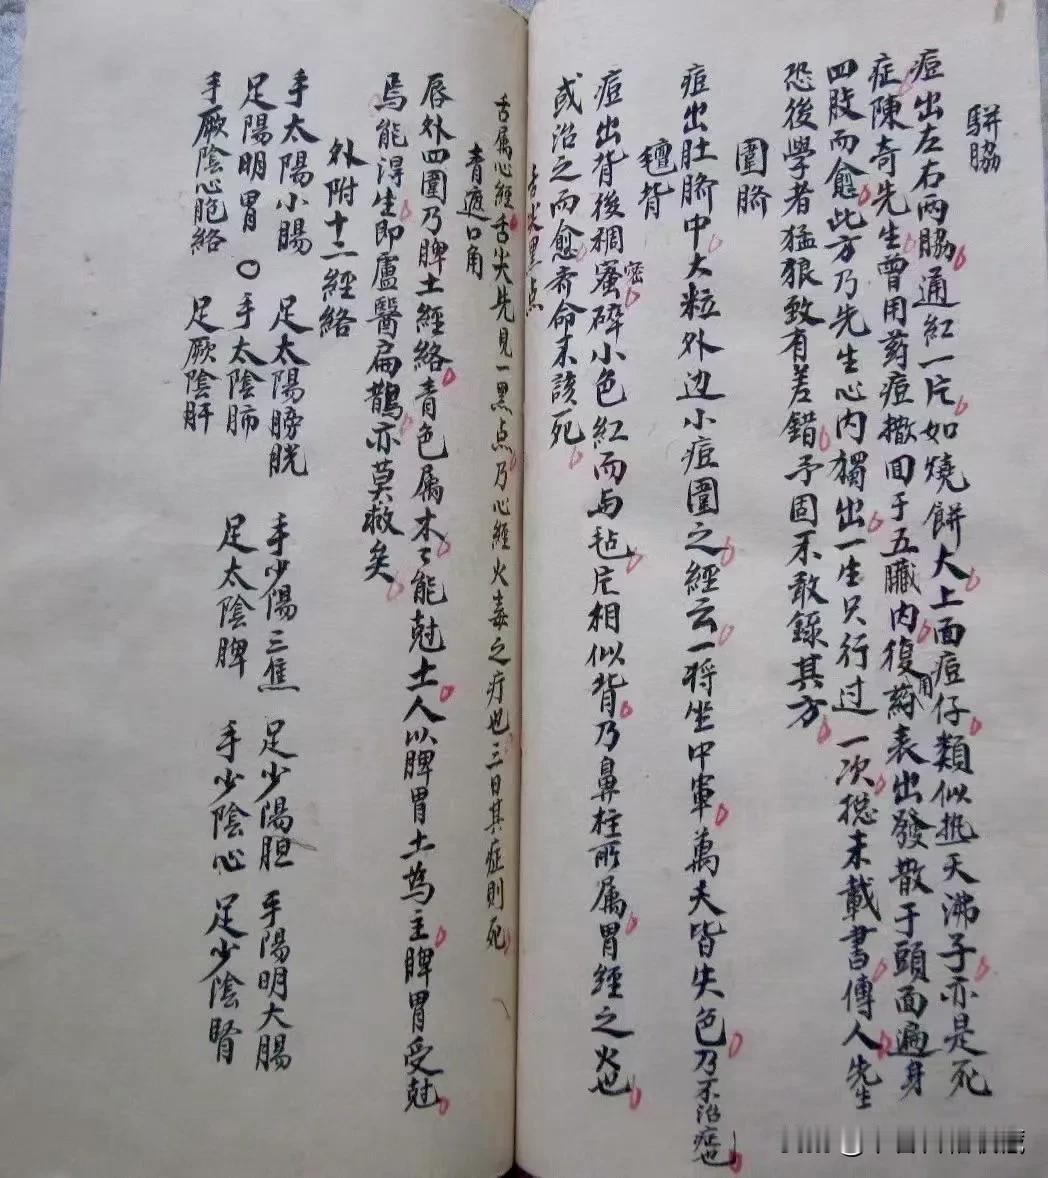 駢脇
痘出左右兩脇通紅一片如燒餅大上面痘仔類似熱天沸子亦是死
症陳奇先生曾用药痘撒回于五臟內復用药表出發散于頭面遍身
四肢而愈此方乃先生心內獨出一生只行过一次捴未載書傳人先生
恐後學者猛狠致有差錯予固不敢錄其方
圍臍
痘出肚臍中大粒外边小痘圍之經云一將坐中軍萬夫皆失色乃不治症也
氊背
痘出背後稠蜜密碎小色紅而与毡片相似背乃鼻柱所属胃經之火也
或治之而愈者命未該死
舌尖黑点
舌属心經舌尖先見一黑点乃心經火毒之疔也三日其症則死
青遮口角
唇外四圍乃脾土經絡青色属木〻能尅土人以脾胃土為主脾胃受尅
焉能得生即盧醫扁鵲亦莫救矣
外附十二經絡
手太陽小腸 足太陽膀胱 手少陽三焦 足少陽胆 手陽明大腸
足陽明胃 〇 手太陰肺 足太陰脾 手少陰心 足少陰腎
手厥陰心胞絡 足厥陰肝